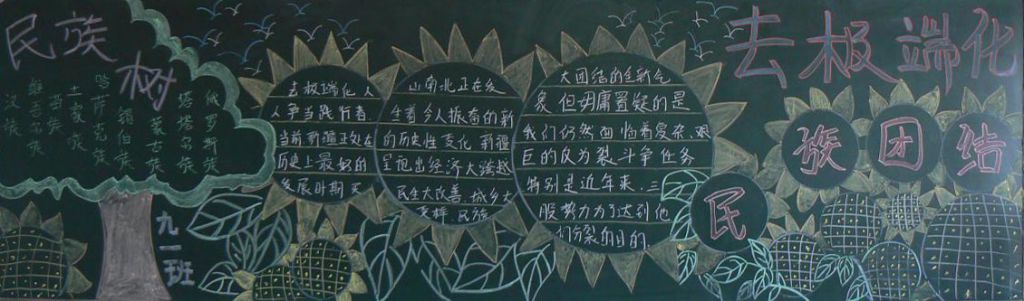 民族树
汉族
维吾尔族
回族
土家族
哈萨克族
锡伯族
蒙古族
塔塔尔族
俄罗斯族
九一班
去极端化人
人争当践行者.
当前新疆正处在
历史上最好的
发展时期 天
山南北正在发
生着令人振奋的新
的历史性变化 新疆
呈现出经济大跨越
民生大改善、城乡大
变样、民族
大团结的全新气
象.但毋庸置疑的是
我们仍然面临着复杂.艰
巨的反分裂斗争任务
特别是近年来.三
股势力为了达到他
们分裂的目的.
去极端化
民族团结